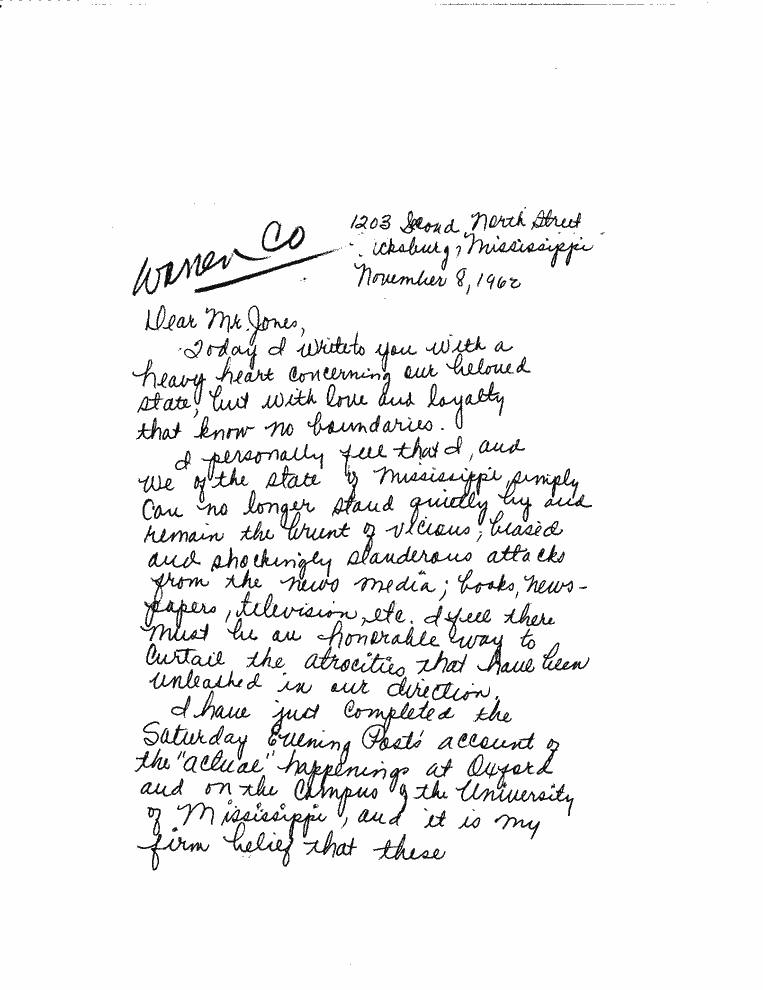 1203 Second North Street
Warren Co
icksburg, Mississippi
November 8, 1962
Dear Mr. Jones,
Today I write to you with a
heavy heart concerning our beloved
state, but with love and loyalty
that know no boundaries.
I personally feel that I, and
we of the state of Mississippi, simply
can no longer stand quietly by and
remain the brunt of vicious, biased
and shockingly slanderous attacks
from the news media; books, news-
papers, television, etc. I feel there
must be an honorable way to
curtail the atrocities that have been
unleashed in our direction.
I have just completed the
Saturday Evening Post's account of
the "actual" happenings at Oxford
and on the Campus of the University
of Mississippi, and it is my
firm belief that these